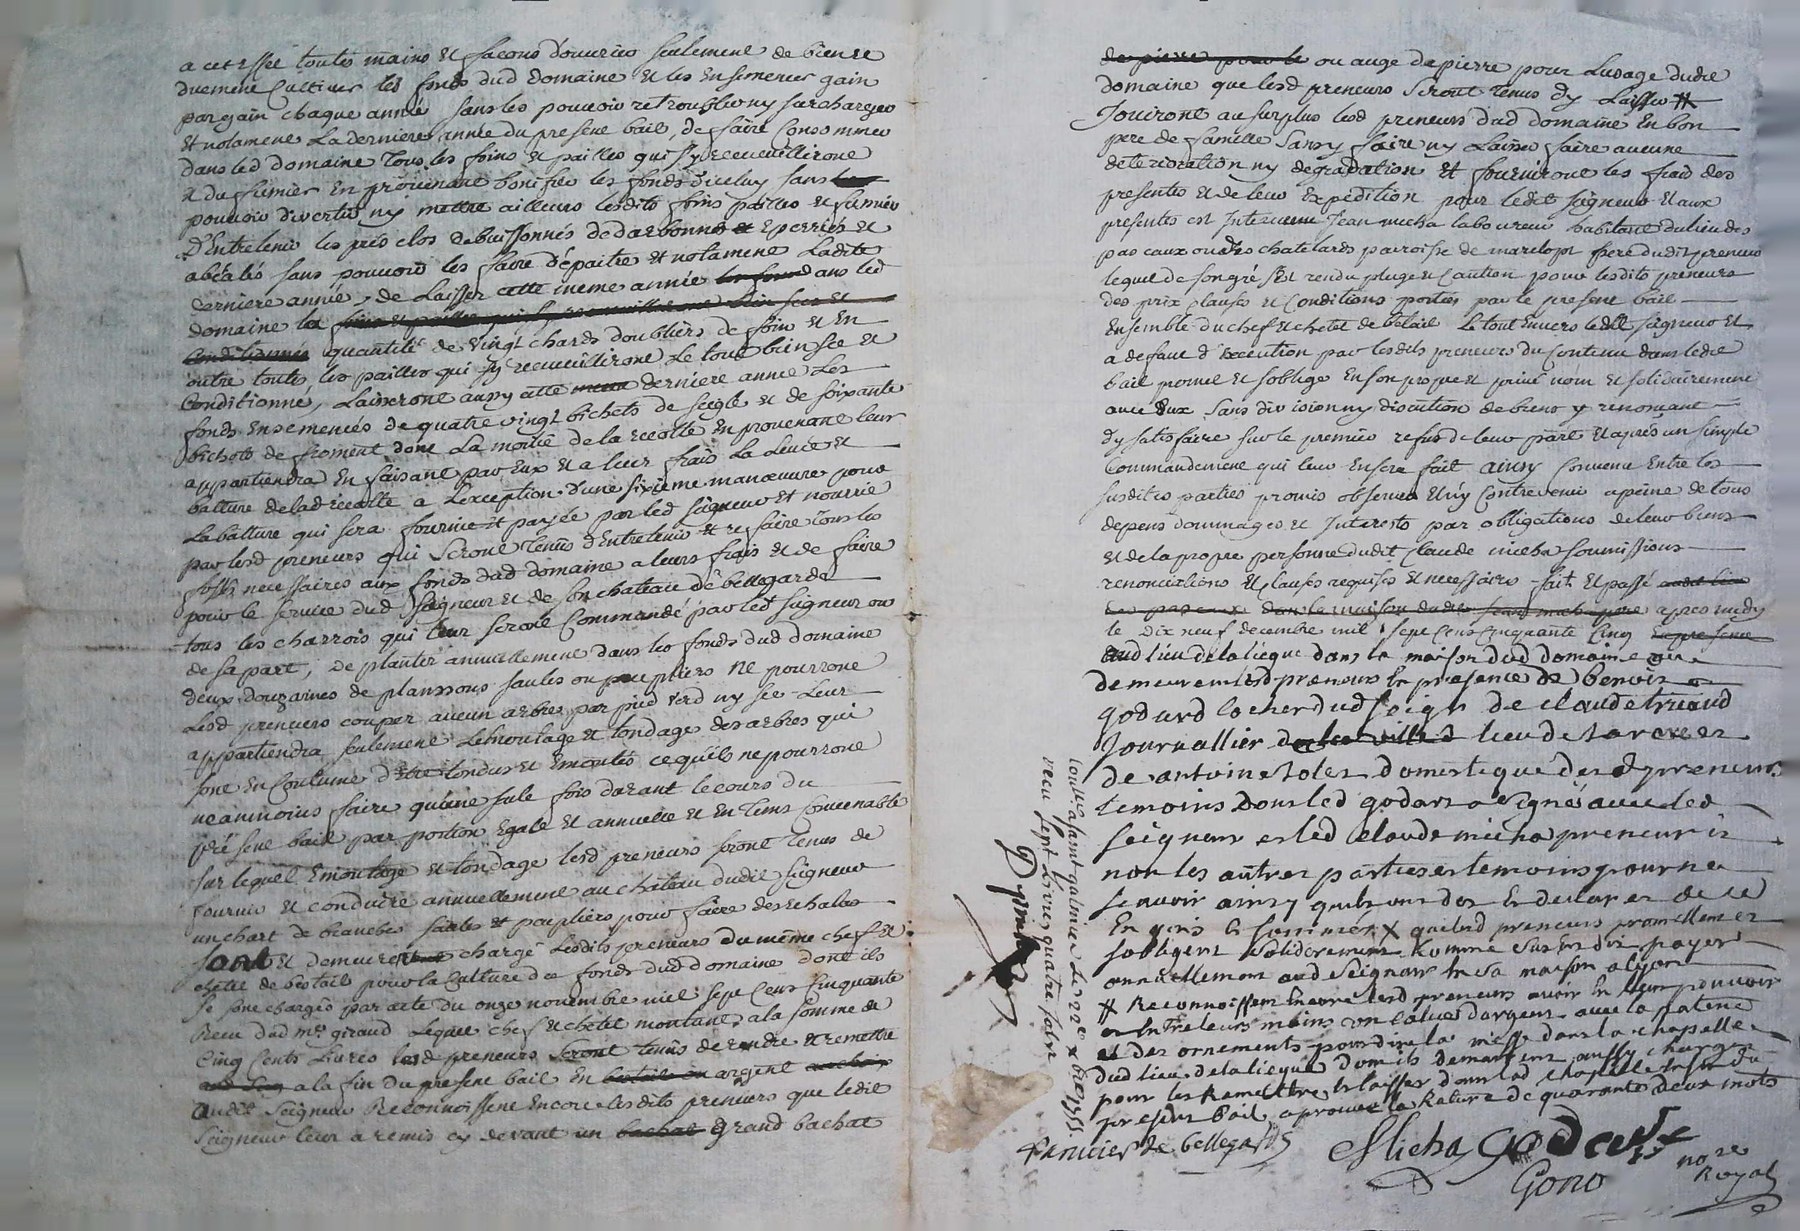 a cet effet toutes mains et facons d'ouvries seulement de bien et
duement Cultiver les fonds dud Domaine et les Ensemencer gain
par gain chaque année sans les pouvoir retroubler ny surcharger
et notament La derniere année du present bail, de faire Consommer
dans led domaine tous les foins et pailles qui s'y recueuilliront
et du fumier En provenant bonifier les fonds d'iceluy sans
pouvoir divertir ny mettre ailleurs lesdits foins pailles et fumier
d'Entretenir les prés clos debuissonnés dedarbonnés et Epierrés et
abéalés sans pouvoir les faire dépaitre et notament Ladite
derniere année, de Laisser cette meme année dans led
domaine la foins et pailles qui s'y recueuilliront bien secs et
Conditionnés quantité de vingt chards doubliers de foin et En
outre toutes les pailles qui s'y recueuilliront Le tout bien sec et
Conditionné, Laisseront aussy cette meme derniere année Les
fonds Ensemencés de quatre vingt bichets de seigle et de soixante
bichets de froment dont La moitié de la recolte En provenant leur
appartiendra En faisant par Eux et a leur frais La Levée et
batture de lad récolte a L'exception d'une sixieme manoeuvre pour
La batture qui sera fournie et payée par led seigneur et nourrie
par lesd preneurs qui seront tenus d'Entretenir et de faire tous les
fossés necessaires aux fonds dud domaine a leurs frais et de faire
pour le service dud seigneur et de son chateau de bellegarde
tous les charrois qui leur seront Commandé par led seigneur ou
de sa part, de planter annuellement dans les fonds dud domaine
deux douzaines de planssons saules ou peupliers ne pourront
Lesd preneurs couper aucun arbres par pied verd ny sec Leur
appartiendra seulement Lemoutage et tondage des arbres qui
sont En Coutume d'être tondus et Emoutés ce qu'ils ne pourront
neanmoins faire qu'une sule fois durant le cours du
présent bail par portion Egale et annuelle et En tems Convenable
sur lequel Emoutage et tondage lesd preneurs seront tenus de
fournir et conduire annuellement au château dudit seigneur
un chart de branches saules et peupliers pour faire des Echalas
sont et demeurent chargé Lesdits preneurs du même chef et
chetel de bestail pour la Culture des fonds dud domaine dont ils
se sont chargés par acte du onze novembre mil sept Cens Cinquante
Receu dud me giraud Lequel chef et chetel montant a la somme de
Cinq Cents Livres lesd preneurs seront tenus de rendre et remettre
a la fin du present bail En bestail ou argent
audit Seigneur Reconnoissent Encore lesdits preneurs que ledit
Seigneur leur a remis cy devant un bachat grand bachat
de pierre pour le ou auge de pierre pour Lusage dudit
domaine que lesd preneurs seront tenus d'y Laisser #
Jouiront au surplus lesd preneurs dud domaine En bon
pere de famille sans y faire ny Laisser faire aucune
deterioration ny degradation et fourniront les frais des
presentes et de leur Expedition pour ledit seigneur et aux
presentes est Intervenu Jean micha laboureur habitant du lieu des
pas caux ou des chatelards paroisse de pere dudit preneur
lequel de son gré s'est rendu pleige et Caution pour lesdits preneurs
des prix clauses et Conditions portées par le present bail
Ensemble du chef et chetel de bétail Le tout Envers ledit seigneur et
a defaut d'Execution par lesdits preneurs du Contenu dans ledit
bail promet et s'oblige En son propre et privé nom et solidairement
avec Eux sans division ny discution de biens y renoncant
d'y satisfaire sur le premier refus de leur part et apres un simple
Commandement qui leur En sera fait ainsy Convenu Entre les
susdites parties promis observer et n'y Contrevenir a peine de tous
depens dommages et Interests par obligations de leur biens
et de la propre personne dudit Claude micha soumissions
renonciations et clauses requises et necessaires fait et passé audit lieu
des pas caux dans la maison dudit Jean micha pere apres midy
le dix neuf decembre mil sept Cens Cinquante Cinq
aud lieu de la lieque dans la maison dud domaine ou
demeurent lesd preneurs En presence de benoit
godard cocher dud seigr de claude triaud
Journallier lieu de
de antoine domestique desd preneurs
temoins dont led godard a signé avec led
seigneur et led claude micha preneur et
non les autres parties et temoins pour ne
scavoir ainsy quils ont dit et declarer de ce
Enquis et sommés X quelesd preneurs promettent et
sobligent solidairement Comme sus est dit payer
annuellement aud Seigneur En sa maison a lyon
# Reconnoissent Encore lesd preneurs avoir En leur pouvoir
et Entre leurs mains un calice dargent avec la patene
et des ornements pour dire la messe dans la chapelle
dud lieu de la lieque dont ils demeurent aussy charger
pour les Remettre et laisser dans lad chapelle En fin du
present bail aprouvé la Rature de quarante deux mots
Contlé a saint galmier le 22e Xbre 1755.
receu sept livres quatre sols
farnier de bellegarde
Micha
Godard
Gono
nore
Royal